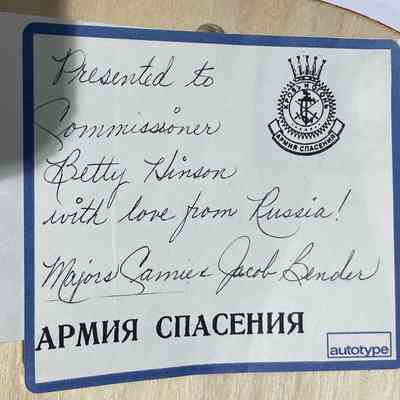 Presented to
КРОВЬ И ОГОНЬ
АРМИЯ СПАСЕНИЯ
Commissioner
Betty Hinson
with love from Russia!
Majors Camie & Jacob Bender
АРМИЯ СПАСЕНИЯ
autotype